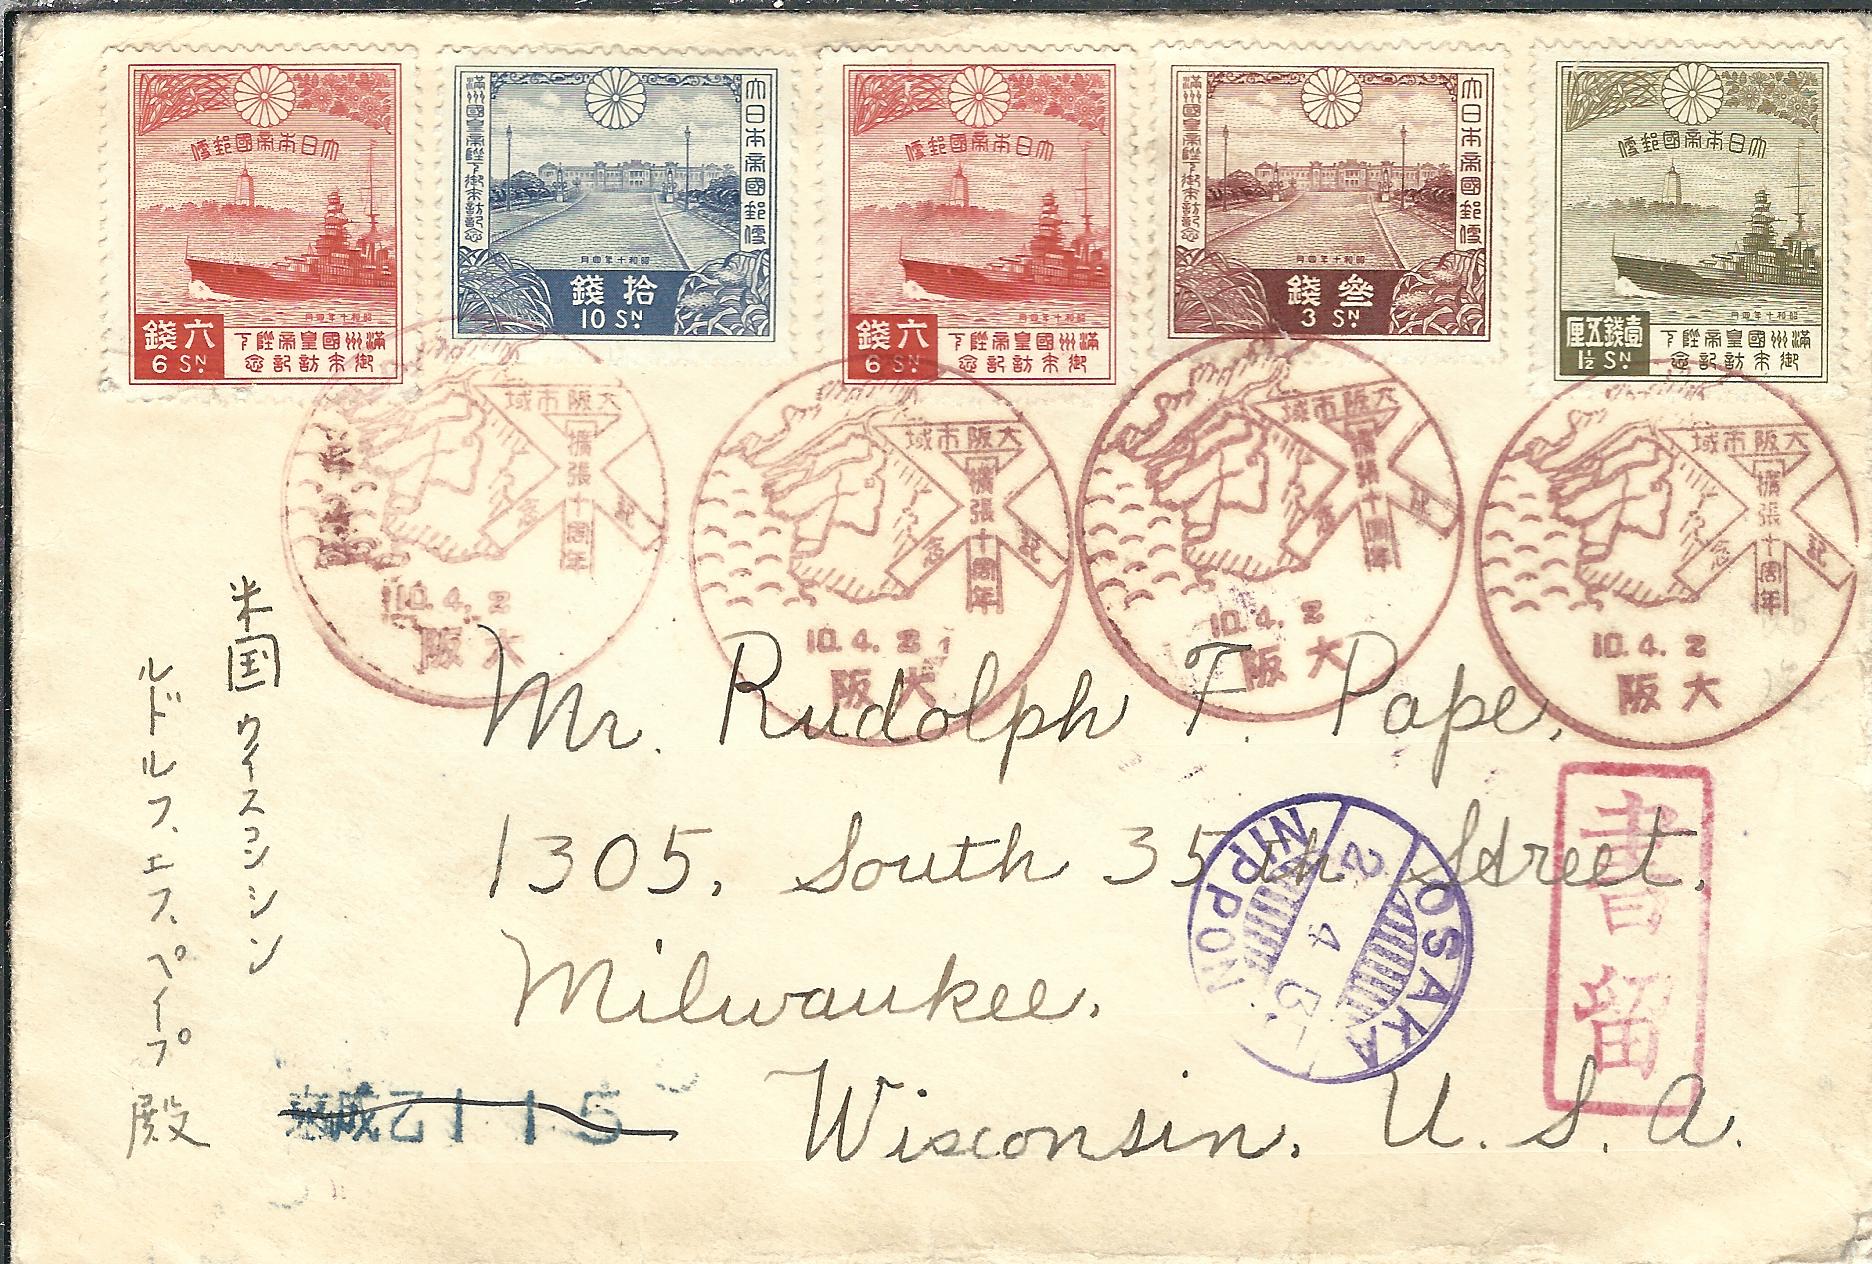 大日本帝國郵便
昭和十年四月
六錢
6 SN.
滿州國皇帝陛下
御来訪記念
大日本帝國郵便
滿州國皇帝陛下御来訪記念
昭和十年四月
拾錢
10 SN.
大日本帝國郵便
昭和十年四月
六錢
6 SN.
滿州國皇帝陛下
御来訪記念
大日本帝國郵便
滿州國皇帝陛下御来訪記念
昭和十年四月
叄錢
3 SN.
大日本帝國郵便
昭和十年四月
壹錢五厘
1½ SN
滿州國皇帝陛下
御来訪記念
大阪市域
擴張十周年
記念
10.4.2
大阪
大阪市域
擴張十周年
記念
10.4.2
大阪
大阪市域
擴張十周年
記念
10.4.2
大阪
大阪市域
擴張十周年
記念
10.4.2
大阪
米国 ウイスコンシン
ルドルフ、エフ、ペイプ 殿
Mr. Rudolph F. Pape,
1305, South 35th Street,
Milwaukee,
Wisconsin, U. S. A.
OSAKA
2 4
NIPPON
書留
乙115